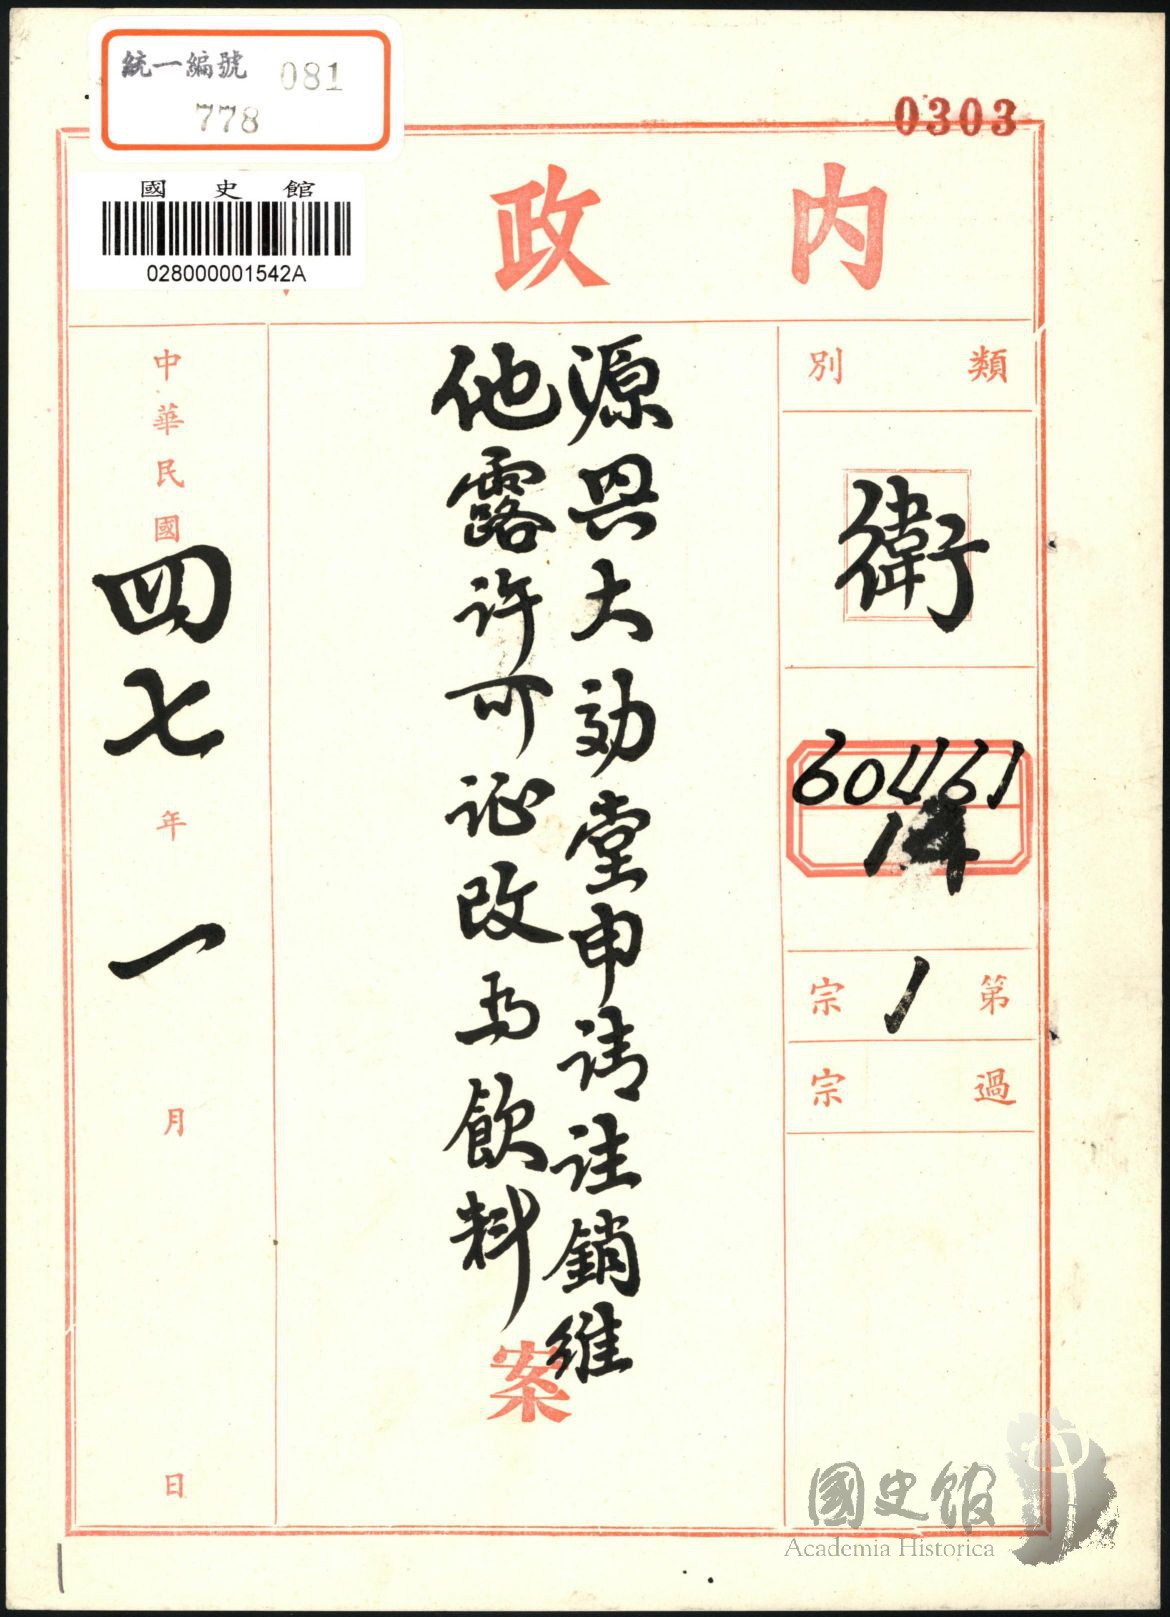 統一編號 081
778
0303
國史館
028000001542A
內政
類別
衛
60461
第1宗
過宗
源興大効堂申請註銷維
他露許可证改为飲料
案
中華民國四七年一月日
國史館
Academia Historica